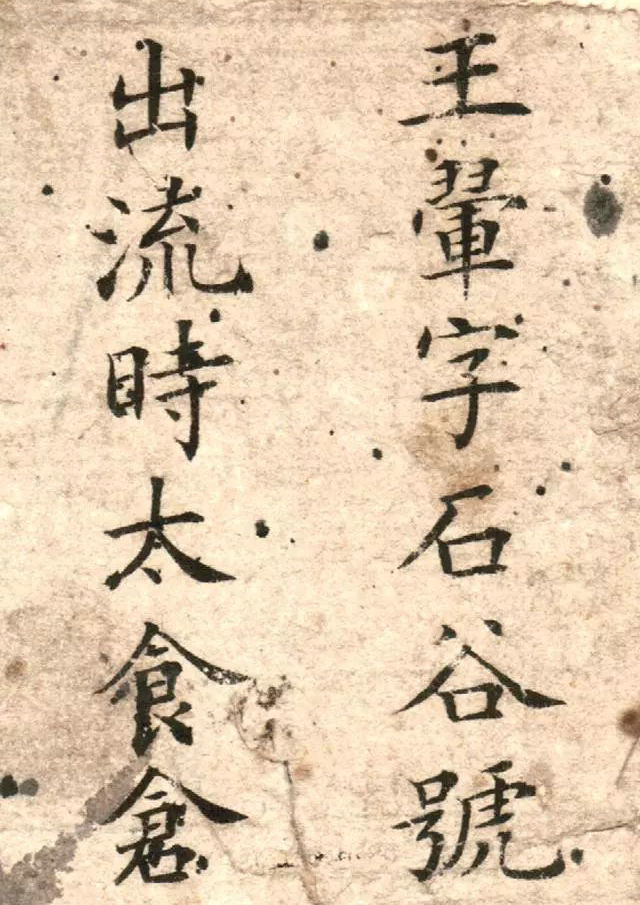 王翬字石谷號
出流時太食倉